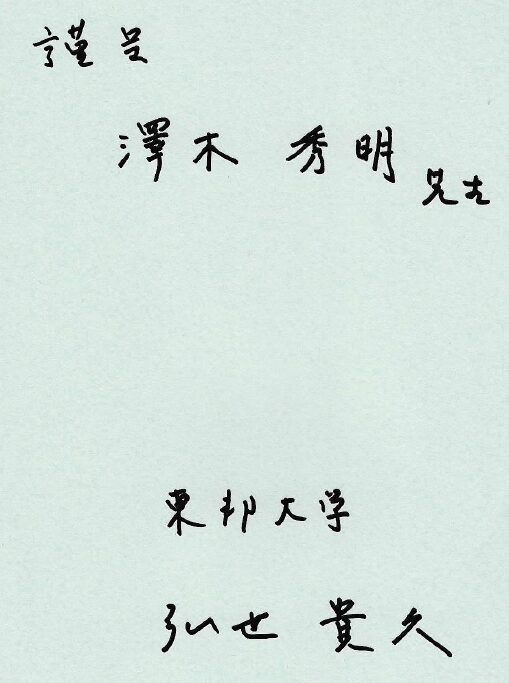 謹呈
澤木 秀明
東邦大学
弘世 貴久